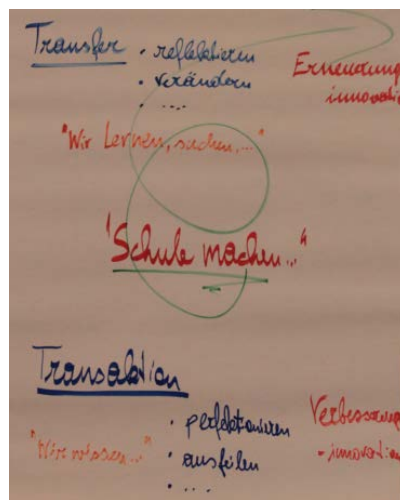 Transfer
• reflektieren
• verändern
• ....
Erneuerung
innovati
"Wir lernen, suchen, ..."
"Schule machen..."
Transaktion
• perfektionieren
• ausfeilen
• ....
"Wir wissen..."
Verbesserung
- innovation